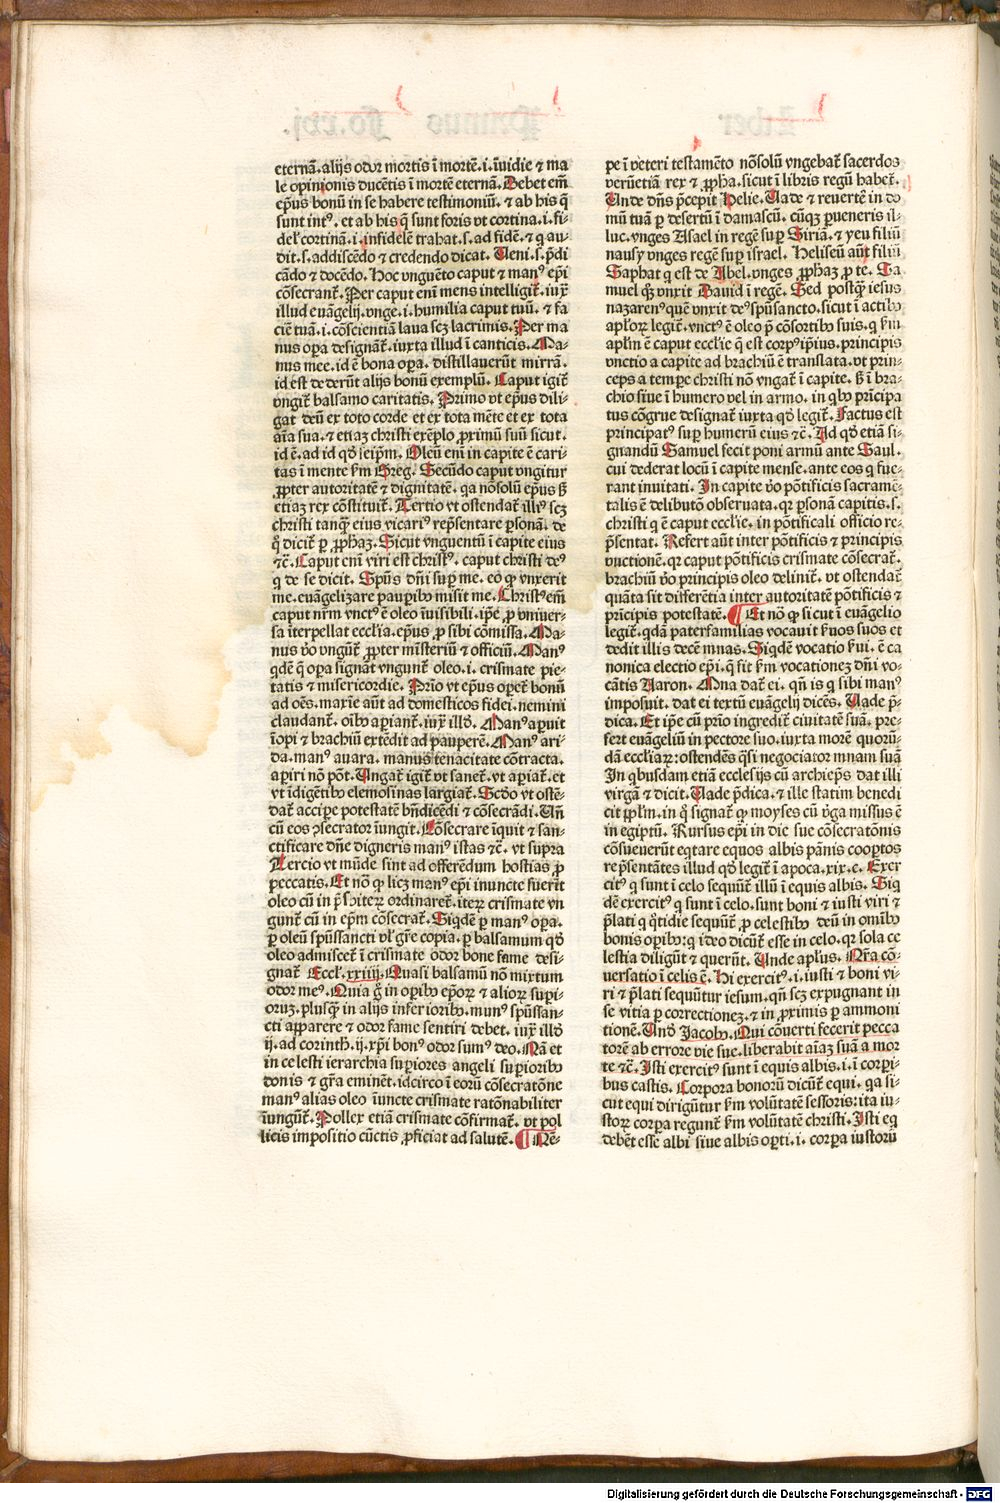 eternã. alijs odor mortis ĩ mortẽ. i. ĩuidie ⁊ ma
le opinionis ducẽtis ĩ mortẽ eternã. Debet em̃
ep̃us bonũ in se habere testimoniũ. ⁊ ab his q̃
sunt intꝰ. et ab his q̃ sunt foris vt cortina. i. fi-
del' cortinã. i. infidelẽ trahat. s. ad fidẽ. ⁊ q au-
dit. s. addiscẽdo ⁊ credendo dicat. Veni. s. p̃di
cãdo ⁊ docẽdo. Hoc vnguẽto caput ⁊ manꝰ ep̃i
cõsecrant᷑. Per caput eni mens intelligit᷑. iuxͣ
illud euãgelij. vnge. i. humilia caput tuũ. ⁊ fa
ciẽ tuã. i. cõscientiã laua scꝫ lacrimis. Per ma
nus oꝑa designãt᷑. iuxta illud ĩ canticis. Ma-
nus mee. id ẽ bona oꝑa. distillauerũt mirrã.
id est dederũt alijs bonũ exemplũ. Caput igit᷑
vngit᷑ balsamo caritatis. Primo vt ep̃us dili-
gat deũ ex toto corde et ex tota mẽte et ex tota
aĩa sua. ⁊ etiaꝫ christi exẽplo ꝓximũ suũ sicut.
id ẽ. ad id qð seip̃m. Oleũ eni in capite ẽ cari-
tas ĩ mente ẜm Greg. Secũdo caput vngitur
ꝓpter autoritatẽ ⁊ dignitatẽ. qa nõsolũ ep̃us ß
etiaꝫ rex cõstituit᷑. Tertio vt ostendat᷑ illiꝰ scꝫ
christi tanqͣ eius vicariꝰ rep̃sentare ꝑsonã. de
q̊ dicit᷑ ꝑ ꝓphaꝫ. Sicut vnguentũ ĩ capite eius
⁊c̃. Caput eni viri est christꝰ. caput christi deꝰ
q de se dicit. Spũs dñi suꝑ me. eo ꝙ vnxerit
me. euãgelizare pauꝑibꝰ misit me. Christꝰ em̃
caput nr̃m vnctꝰ ẽ oleo ĩuisibili. ip̃e ꝓ vniuer-
sa ĩterpellat ecclĩa. ep̃us ꝓ sibi cõmissa. Ma-
nus ṽo vngũt᷑ ꝓpter mĩsteriũ ⁊ officiũ. Manꝰ
qdẽ q̃ oꝑa signãt vngunt᷑ oleo. i. crismate pie-
tatis ⁊ misericordie. Prĩo vt ep̃us oꝑet᷑ bonũ
ad oẽs. maxĩe aũt ad domesticos fidei. nemini
claudant᷑. oĩbꝰ aꝑiant᷑. iuxͣ illð. Manꝰ aꝑuit
ĩopi ⁊ brachiũ extẽdit ad pauperẽ. Manꝰ ari-
da. manꝰ auara. manus tenacitate cõtracta.
aꝑiri nõ põt. Ungãt᷑ igit᷑ vt sanet᷑. vt aꝑiat᷑. et
vt ĩdigẽtibꝰ elemosinas largiat᷑. Scðo vt ostẽ-
dat᷑ accipe potestatẽ bñdicẽdi ⁊ cõsecrãdi. Uñ
cũ eos ɔsecrator ĩungit. Cõsecrare ĩquit ⁊ san-
ctificare dñe digneris manꝰ istas ⁊c̃. vt supra
Tercio vt mũde sint ad offerẽdum hostias ꝓ
peccatis. Et nõ ꝙ licꝫ manꝰ ep̃i inuncte fuerĩt
oleo cũ in p̃sbiteꝝ ordinaret᷑. iteꝝ crismate vn
gunt᷑ cũ in ep̃m cõsecrat᷑. Siqdẽ ꝑ manꝰ oꝑa.
ꝑ oleũ spũssancti vl' gr̃e copia. ꝑ balsamum qð
oleo admiscet᷑ ĩ crismate odor bone fame desi-
gnat᷑. Eccl'. xxiiij. Quasi balsamũ nõ mixtum
odor meꝰ. Quia g̊ in oꝑibꝰ ep̃oꝝ ⁊ alioꝝ suꝑi-
oruꝫ. plusqͣ in alijs inferioribꝰ. munꝰ spũssan-
cti apparere ⁊ odor fame sentiri debet. iuxͣ illð
ij. ad corinth̃. ij. xp̃i bonꝰ odor sumꝰ deo. Nã et
in celesti ierarchia suꝑiores angeli suꝑioribꝰ
donis ⁊ gr̃a eminẽt. idcirco ĩ eorũ cõsecratõne
manꝰ alias oleo ĩuncte crismate ratõnabiliter
ĩungũt᷑. Pollex etiã crismate cõfirmat᷑. vt pol
licis impositio cũctis ꝓficiat ad salutẽ. ¶ Nẽ-
pe ĩ veteri testamẽto nõsolũ vngebat᷑ sacerdos
verũetiã rex ⁊ ꝓpha. sicut ĩ libris regũ habet᷑.
Unde dñs p̃cepit Helie. Uade ⁊ reuertẽ in do
mũ tuã ꝑ desertũ ĩ damascũ. cũqꝫ ꝑueneris il-
luc. vnges Asael in regẽ suꝑ Siriã. ⁊ yeu filiũ
nausy vnges regẽ suꝑ israel. Heliseũ aũt filiũ
Saphat q est de Abel. vnges ꝓphaꝫ ꝓ te. Sa
muel qꝫ vnxit Dauid ĩ regẽ. Sed postqͣ iesus
nazarenꝰ quẽ vnxit deꝰ spũsancto. sicut ĩ actibꝰ
apl'oꝝ legit᷑. vnctꝰ ẽ oleo p̃ cõsortibꝰ suis. q ẜm
apl'm ẽ caput eccl'ie q̃ est corpꝰ ip̃ius. principis
vnctio a capite ad brachiũ ẽ translata. vt prin-
ceps a tempe christi nõ vngat᷑ ĩ capite. ß ĩ bra-
chio siue ĩ humero vel in armo. in qbꝰ prĩcipa
tus cõgrue designat᷑ iuxta qð legit᷑. Factus est
principatꝰ suꝑ humerũ eius ⁊c̃. Ad qð etiã si-
gnandũ Samuel fecit poni armũ ante Saul.
cui dederat locũ ĩ capite mense. ante eos q fue-
rant inuitati. In capite ṽo põtificis sacramẽ-
talis ẽ delibutõ obseruata. qꝛ ꝑsonã capitis. s.
christi q ẽ caput eccl'ie. in põtificali officio re-
p̃sentat. Refert aũt inter põtificis ⁊ principis
vnctionẽ. qꝛ caput põtificis crismate cõsecrat᷑.
brachiũ ṽo principis oleo delinit᷑. vt ostendat᷑
quãta sit differẽtia inter autoritatẽ põtificis ⁊
prĩcipis potestatẽ. ¶ Et nõ ꝙ sicut ĩ euãgelio
legit᷑. qdã paterfamilias vocauit ẜuos suos et
dedit illis decẽ mnas. Siqdẽ vocatio ẜui. ẽ ca
nonica electio ep̃i. q̃ fit ẜm vocationeꝫ dñi vo-
cãtis Aaron. Mna dat᷑ ei. qñ is q sibi manꝰ
imposuit. dat ei textũ euãgelij dicẽs. Uade p̃-
dica. Et ip̃e cũ prĩo ingredit᷑ ciuitatẽ suã. pre-
fert euãgeliũ in pectore suo. iuxta morẽ quorũ-
dã eccl'iaꝝ: ostendẽs q̃si negociator mnam suã
In qbusdam etiã ecclesijs cũ archiep̃s dat illi
virgã ⁊ dicit. Uade p̃dica. ⁊ ille statim benedi
cit pp̃l'm. in q̊ signat᷑ ꝙ moyses cũ ṽga missus ẽ
in egiptũ. Rursus ep̃i in die sue cõsecratõnis
cõsueuerũt eqtare equos albis pãnis cooꝑtos
rep̃sentãtes illud qð legit᷑ ĩ apoca. xix. c. Exer
citꝰ q sunt ĩ celo sequũt᷑ illũ ĩ equis albis. Siq
dẽ exercitꝰ q sunt ĩ celo. sunt boni ⁊ iusti viri ⁊
p̃lati q q̊tidie sequũt᷑ ꝓ celestibꝰ deũ in omĩbꝰ
bonis oꝑibꝰ: q ideo dicũt᷑ esse in celo. qꝛ sola ce
lestia diligũt ⁊ querũt. Unde apl'us. Nr̃a cõ-
uersatio ĩ celis ẽ. Hi exercitꝰ. i. iusti ⁊ boni vi-
ri ⁊ p̃lati sequũtur iesum. qñ scꝫ expugnant in
se vitia ꝑ correctioneꝫ. ⁊ in ꝓximis ꝑ ammoni
tionẽ. Unð Jacobꝰ. Qui cõuerti fecerit pecca
torẽ ab errore vie sue. liberabit aĩaꝫ suã a mor
te ⁊c̃. Isti exercitꝰ sunt ĩ equis albis. i. ĩ corꝑi-
bus castis. Corpora bonorũ dicũt᷑ equi. qa si-
cut equi dirigũtur ẜm volũtatẽ sessoris: ita iu-
stoꝝ corꝑa regunt᷑ ẜm volũtatẽ christi. Isti eq
debẽt esse albi siue albis oꝑti. i. corꝑa iustorũ
Digitalisierung gefördert durch die Deutsche Forschungsgemeinschaft - DFG